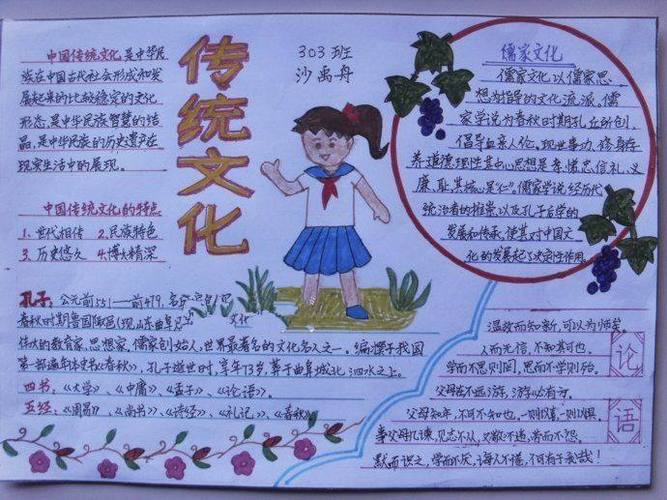 传统文化
303班
沙禹舟
中国传统文化是中华民
族在中国古代社会形成和发
展起来的比较稳定的文化
形态,是中华民族智慧的结
晶,是中华民族的历史遗产在
现实生活中的展现。
中国传统文化的特点
1、世代相传 2、民族特色
3、历史悠久 4、博大精深
儒家文化
儒家文化以儒家思
想为指导的文化流派。儒
家学说为春秋时期孔丘所创,
倡导血亲人伦、现世事功、修身存
养、道德理性其中心思想是孝、悌、忠、信、礼、义
廉、耻,其核心是“仁”。儒家学说经历代
统治者的推崇,以及孔子后学的
发展和传承,使其对中国文
化的发展起了决定性作用。
孔子:公元前551—前479,名
春秋时期鲁国陬邑(现山东曲阜
伟大的教育家、思想家,儒家创始人,世界最著名的文化名人之一。编撰了我国
第一部编年体史书《春秋》,孔子逝世时,享年73岁,葬于曲阜城北泗水之上。
四书:《大学》、《中庸》、《孟子》、《论语》。
五经:《周易》、《尚书》、《诗经》、《礼记》、《春秋》
论语
温故而知新,可以为师矣。
人而无信,不知其可也。
学而不思则罔,思而不学则殆。
父母在不远游,游必有方。
父母之年,不可不知也,一则以喜,一则以惧。
事父母几谏,见志不从,又敬不违,劳而不怨。
默而识之,学而不厌,诲人不倦,何有于我哉!